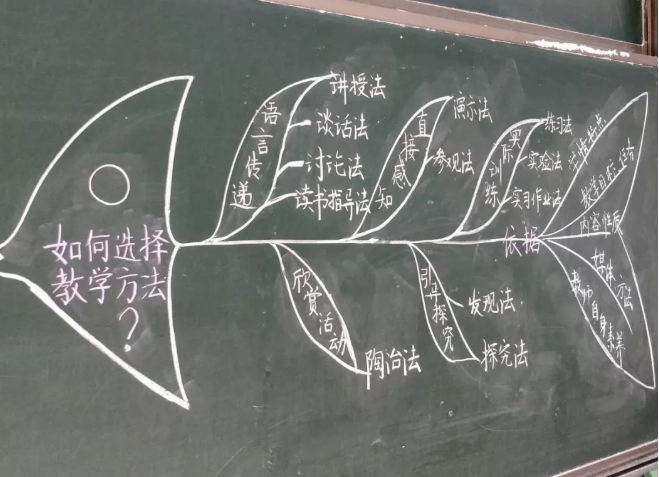 如何选择
教学方法
?
语言传递
讲授法
谈话法
讨论法
读书指导法
直接感知
演示法
参观法
实际训练
练习法
实验法
实习作业法
欣赏活动
陶冶法
引导探究
发现法
探究法
依据
内容性质
媒体方法
教师自身素养